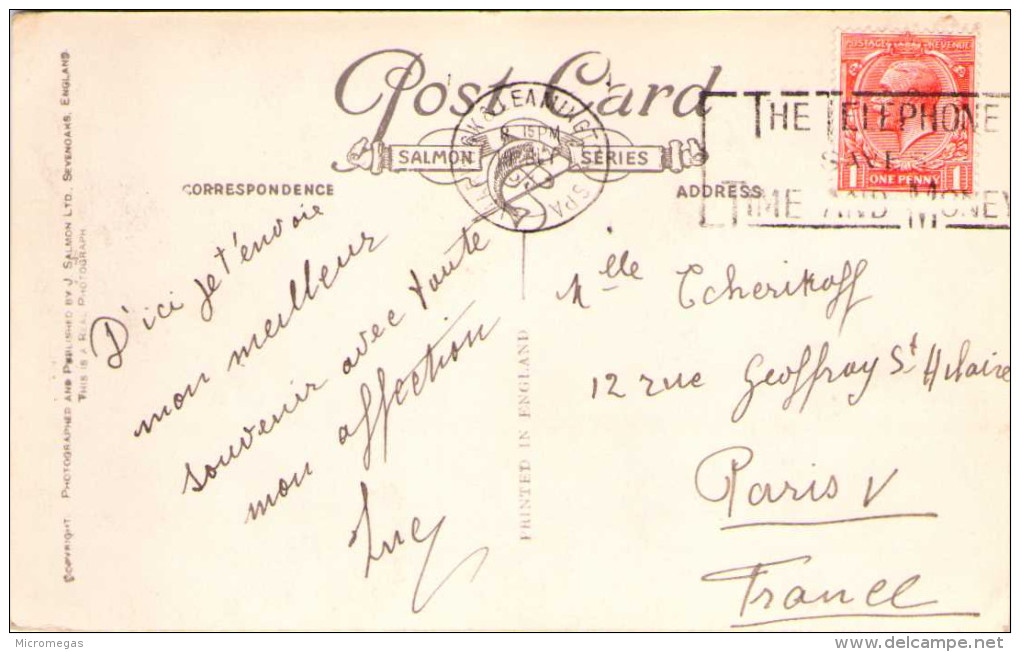 Post Card
SALMON SERIES
CORRESPONDENCE
ADDRESS
POSTAGE REVENUE
1 ONE PENNY 1
& LEAMINGTON SPA
8 15 PM
THE TELEPHONE
SAVES
TIME AND MONEY
D'ici je t'envoie
mon meilleur
souvenir avec toute
mon affection
Mlle Tcherikoff
12 rue Geoffroy St Hilaire
Paris V
France
PRINTED IN ENGLAND
COPYRIGHT. PHOTOGRAPHED AND PUBLISHED BY J. SALMON LTD, SEVENOAKS, ENGLAND
THIS IS A REAL PHOTOGRAPH.
Micromegas
www.delcampe.net